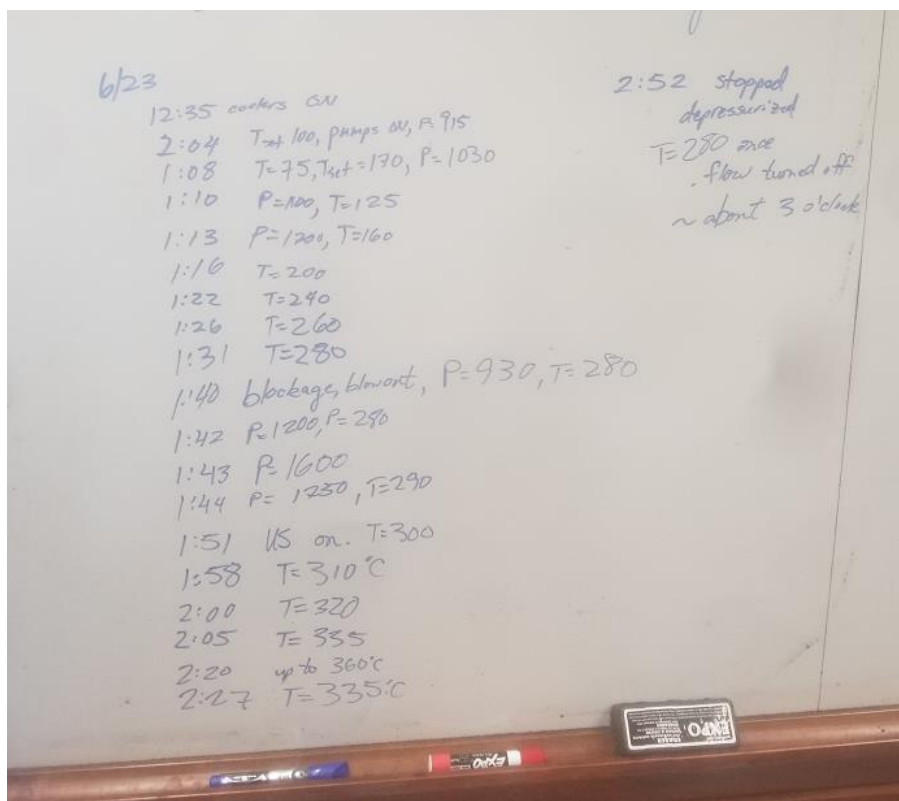 6/23
12:35 coolers ON
2:04 Tset 100, pumps ON, P=915
1:08 T=75, Tset=170, P=1030
1:10 P=1100, T=125
1:13 P=1200, T=160
1:16 T=200
1:22 T=240
1:26 T=260
1:31 T=280
1:40 blockage, blowout, P=930, T=280
1:42 P=1200, P=280
1:43 P=1600
1:44 P= 1250, T=290
1:51 US on. T=300
1:58 T=310°C
2:00 T=320
2:05 T=335
2:20 up to 360°C
2:27 T=335°C
2:52 stopped
depressurized
T=280 once
flow turned off
~ about 3 o'clock
EXPO
EXPO